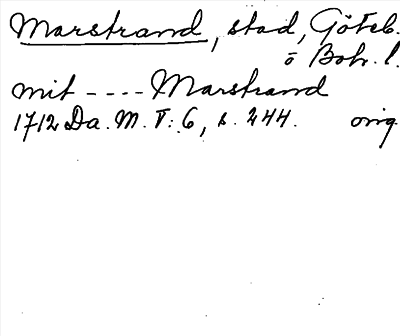 Marstrand, stad, Göteb.
o Boh. l.
mit ---- Marstrand
1712 Da. M. V: 6, s. 244. orig